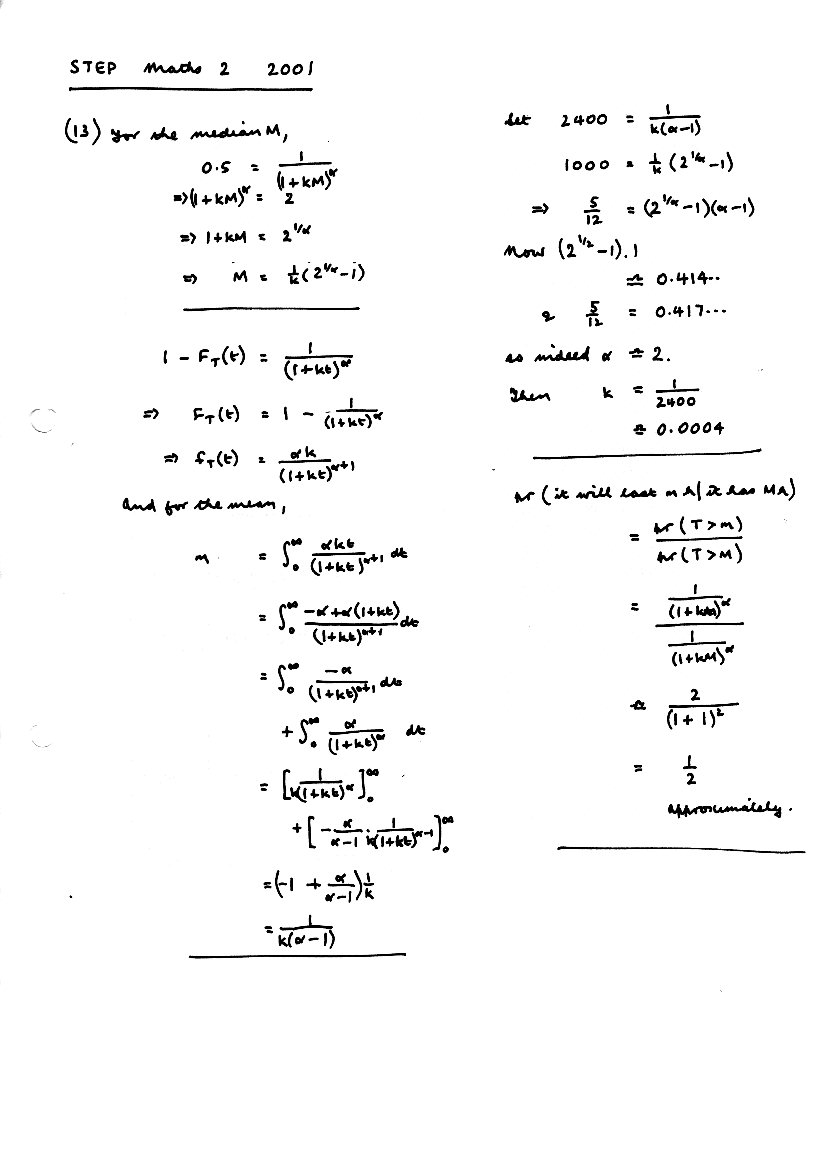 STEP Maths 2 2001
(13) For the median M,
0.5 = 1/(1+kM)^α
⇒ (1+kM)^α = 2
⇒ 1+kM = 2^{1/α}
⇒ M = 1/k (2^{1/α} − 1)
1 − F_T(t) = 1/(1+kt)^α
⇒ F_T(t) = 1 − 1/(1+kt)^α
⇒ f_T(t) = αk/(1+kt)^{α+1}
And for the mean,
m = ∫_0^∞ αkt/(1+kt)^{α+1} dt
= ∫_0^∞ (−α+α(1+kt))/(1+kt)^{α+1} dt
= ∫_0^∞ −α/(1+kt)^{α+1} dt
+ ∫_0^∞ α/(1+kt)^α dt
= [1/(k(1+kt)^α)]_0^∞
+ [−α/(α−1) · 1/(k(1+kt)^{α−1})]_0^∞
= (−1 + α/(α−1)) 1/k
= 1/(k(α−1))
Let 2400 = 1/(k(α−1))
1000 = 1/k (2^{1/α} − 1)
⇒ 5/12 = (2^{1/α} − 1)(α−1)
Now (2^{1/2} − 1).1
≏ 0.414..
& 5/12 = 0.417...
so indeed α ≏ 2.
Then k = 1/2400
≏ 0.0004
pr (it will last m h | it has M h)
= pr(T>m)/pr(T>M)
= (1/(1+km)^α)/(1/(1+kM)^α)
≏ 2/(1+1)^2
= 1/2
approximately.